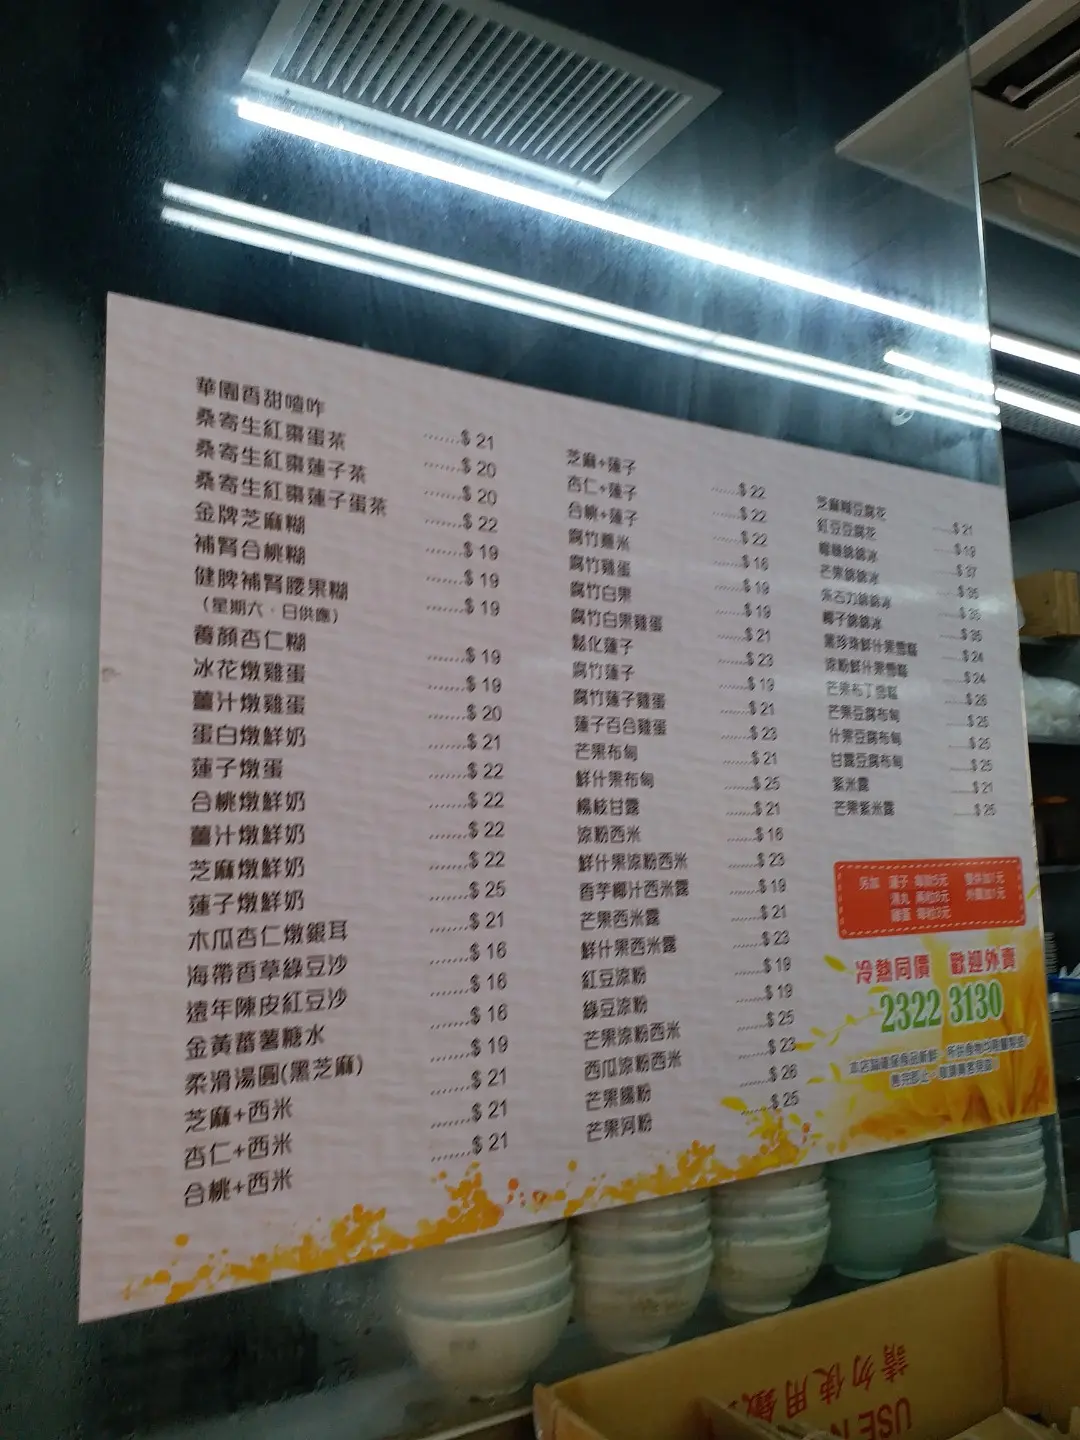 華園香甜喳咋 ........$ 21
桑寄生紅棗蛋茶 ........$ 20
桑寄生紅棗蓮子茶 ........$ 20
桑寄生紅棗蓮子蛋茶 ........$ 22
金牌芝麻糊 ........$ 19
補腎合桃糊 ........$ 19
健脾補腎腰果糊 ........$ 19
(星期六、日供應)
養顏杏仁糊 ........$ 19
冰花燉雞蛋 ........$ 19
薑汁燉雞蛋 ........$ 20
蛋白燉鮮奶 ........$ 21
蓮子燉蛋 ........$ 22
合桃燉鮮奶 ........$ 22
薑汁燉鮮奶 ........$ 22
芝麻燉鮮奶 ........$ 22
蓮子燉鮮奶 ........$ 25
木瓜杏仁燉銀耳 ........$ 21
海帶香草綠豆沙 ........$ 16
遠年陳皮紅豆沙 ........$ 16
金黃蕃薯糖水 ........$ 16
柔滑湯圓(黑芝麻) ........$ 19
芝麻+西米 ........$ 21
杏仁+西米 ........$ 21
合桃+西米 ........$ 21
芝麻+蓮子 ........$ 22
杏仁+蓮子 ........$ 22
合桃+蓮子 ........$ 22
腐竹薏米 ........$ 16
腐竹雞蛋 ........$ 19
腐竹白果 ........$ 19
腐竹白果雞蛋 ........$ 21
鬆化蓮子 ........$ 23
腐竹蓮子 ........$ 19
腐竹蓮子雞蛋 ........$ 21
蓮子百合雞蛋 ........$ 23
芒果布甸 ........$ 21
鮮什果布甸 ........$ 25
楊枝甘露 ........$ 21
涼粉西米 ........$ 16
鮮什果涼粉西米 ........$ 23
香芋椰汁西米露 ........$ 19
芒果西米露 ........$ 21
鮮什果西米露 ........$ 23
紅豆涼粉 ........$ 19
綠豆涼粉 ........$ 19
芒果涼粉西米 ........$ 25
西瓜涼粉西米 ........$ 23
芒果腸粉 ........$ 26
芒果河粉 ........$ 25
芝麻糊豆腐花 ........$ 21
紅豆豆腐花 ........$ 19
榴槤綿綿冰 ........$ 37
芒果綿綿冰 ........$ 35
朱古力綿綿冰 ........$ 35
椰子綿綿冰 ........$ 35
黑珍珠鮮什果雪糕 ........$ 24
涼粉鮮什果雪糕 ........$ 24
芒果布丁雪糕 ........$ 26
芒果豆腐布甸 ........$ 25
什果豆腐布甸 ........$ 25
甘露豆腐布甸 ........$ 25
紫米露 ........$ 21
芒果紫米露 ........$ 25
另加 蓮子
湯丸
雞蛋
冷熱同價 歡迎外賣
2322 3130
請勿使用
USE